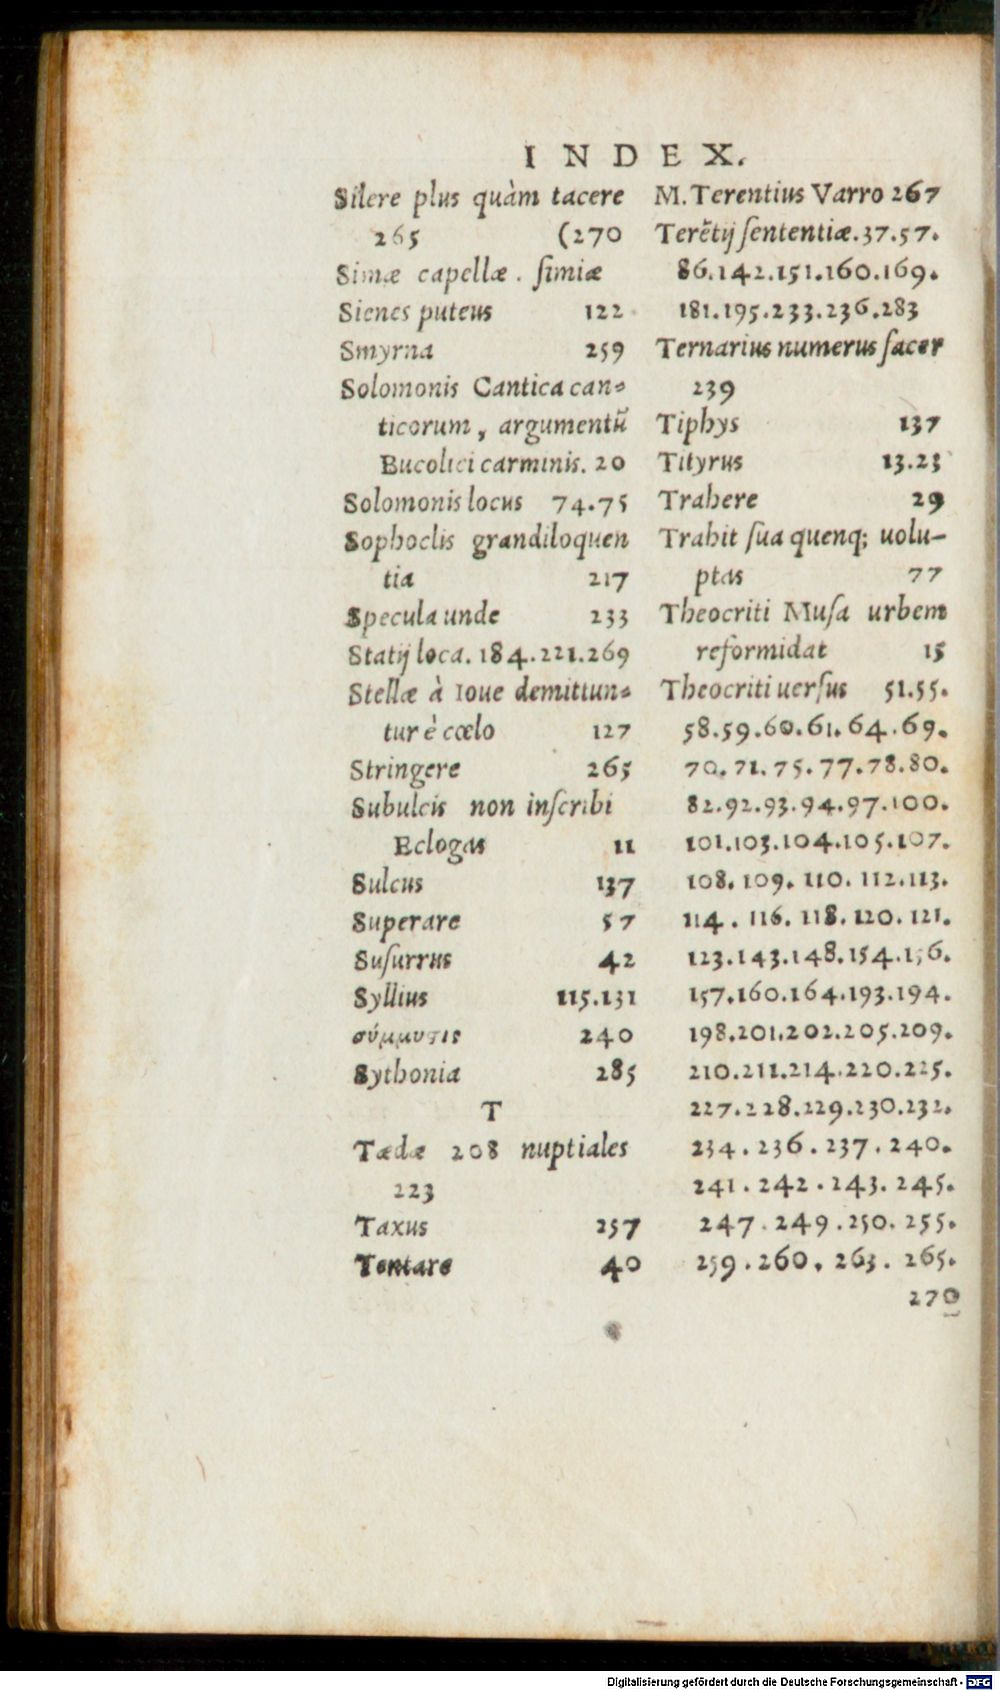 INDEX.
Silere plus quàm tacere
265 (270
Simæ capellæ. ſimiæ
Sienes puteus 122
Smyrna 259
Solomonis Cantica can=
ticorum, argumentũ
Bucolici carminis. 20
Solomonis locus 74.75
Sophoclis grandiloquen
tia 217
Specula unde 233
Statij loca. 184.221.269
Stellæ à Ioue demittun=
tur è cœlo 127
Stringere 265
Subulcis non inſcribi
Eclogas 11
Sulcus 137
Superare 57
Suſurrus 42
Syllius 115.131
σύμμυσις 240
Sythonia 285
T
Tædæ 208 nuptiales
223
Taxus 257
Tentare 40
M. Terentius Varro 267
Terẽtij ſententiæ. 37.57.
86.142.151.160.169.
181.195.233.236.283
Ternarius numerus ſacer
239
Tiphys 137
Tityrus 13.23
Trahere 29
Trahit ſua quenq; uolu-
ptas 77
Theocriti Muſa urbem
reformidat 15
Theocriti uerſus 51.55.
58.59.60.61.64.69.
70.71.75.77.78.80.
82.92.93.94.97.100.
101.103.104.105.107.
108.109.110.112.113.
114.116.118.120.121.
123.143.148.154.156.
157.160.164.193.194.
198.201.202.205.209.
210.211.214.220.225.
227.228.229.230.232.
234.236.237.240.
241.242.243.245.
247.249.250.255.
259.260.263.265.
270
Digitalisierung gefördert durch die Deutsche Forschungsgemeinschaft - DFG